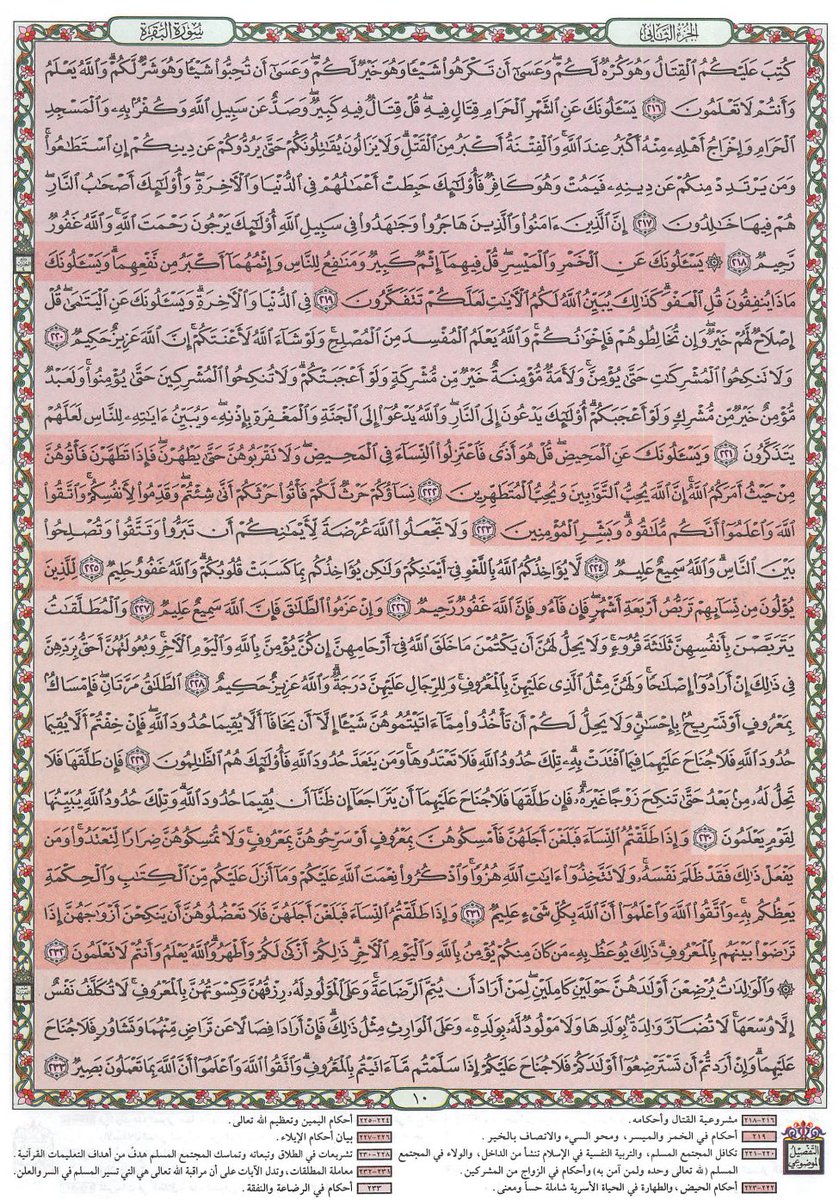 الجزء الثاني
سورة البقرة
كُتِبَ عَلَيْكُمُ الْقِتَالُ وَهُوَ كُرْهٌ لَّكُمْ وَعَسَىٰ أَن تَكْرَهُوا شَيْـًٔا وَهُوَ خَيْرٌ لَّكُمْ وَعَسَىٰ أَن تُحِبُّوا شَيْـًٔا وَهُوَ شَرٌّ لَّكُمْ وَاللَّهُ يَعْلَمُ
وَأَنتُمْ لَا تَعْلَمُونَ ٢١٦ يَسْـَٔلُونَكَ عَنِ الشَّهْرِ الْحَرَامِ قِتَالٍ فِيهِ قُلْ قِتَالٌ فِيهِ كَبِيرٌ وَصَدٌّ عَن سَبِيلِ اللَّهِ وَكُفْرٌ بِهِ وَالْمَسْجِدِ
الْحَرَامِ وَإِخْرَاجُ أَهْلِهِ مِنْهُ أَكْبَرُ عِندَ اللَّهِ وَالْفِتْنَةُ أَكْبَرُ مِنَ الْقَتْلِ وَلَا يَزَالُونَ يُقَاتِلُونَكُمْ حَتَّىٰ يَرُدُّوكُمْ عَن دِينِكُمْ إِنِ اسْتَطَاعُوا
وَمَن يَرْتَدِدْ مِنكُمْ عَن دِينِهِ فَيَمُتْ وَهُوَ كَافِرٌ فَأُولَٰئِكَ حَبِطَتْ أَعْمَالُهُمْ فِي الدُّنْيَا وَالْآخِرَةِ وَأُولَٰئِكَ أَصْحَابُ النَّارِ
هُمْ فِيهَا خَالِدُونَ ٢١٧ إِنَّ الَّذِينَ ءَامَنُوا وَالَّذِينَ هَاجَرُوا وَجَاهَدُوا فِي سَبِيلِ اللَّهِ أُولَٰئِكَ يَرْجُونَ رَحْمَتَ اللَّهِ وَاللَّهُ غَفُورٌ
رَّحِيمٌ ٢١٨ ۞ يَسْـَٔلُونَكَ عَنِ الْخَمْرِ وَالْمَيْسِرِ قُلْ فِيهِمَا إِثْمٌ كَبِيرٌ وَمَنَافِعُ لِلنَّاسِ وَإِثْمُهُمَا أَكْبَرُ مِن نَّفْعِهِمَا وَيَسْـَٔلُونَكَ
مَاذَا يُنفِقُونَ قُلِ الْعَفْوَ كَذَٰلِكَ يُبَيِّنُ اللَّهُ لَكُمُ الْآيَاتِ لَعَلَّكُمْ تَتَفَكَّرُونَ ٢١٩ فِي الدُّنْيَا وَالْآخِرَةِ وَيَسْـَٔلُونَكَ عَنِ الْيَتَامَىٰ قُلْ
إِصْلَاحٌ لَّهُمْ خَيْرٌ وَإِن تُخَالِطُوهُمْ فَإِخْوَانُكُمْ وَاللَّهُ يَعْلَمُ الْمُفْسِدَ مِنَ الْمُصْلِحِ وَلَوْ شَاءَ اللَّهُ لَأَعْنَتَكُمْ إِنَّ اللَّهَ عَزِيزٌ حَكِيمٌ ٢٢٠
وَلَا تَنكِحُوا الْمُشْرِكَاتِ حَتَّىٰ يُؤْمِنَّ وَلَأَمَةٌ مُّؤْمِنَةٌ خَيْرٌ مِّن مُّشْرِكَةٍ وَلَوْ أَعْجَبَتْكُمْ وَلَا تُنكِحُوا الْمُشْرِكِينَ حَتَّىٰ يُؤْمِنُوا وَلَعَبْدٌ
مُّؤْمِنٌ خَيْرٌ مِّن مُّشْرِكٍ وَلَوْ أَعْجَبَكُمْ أُولَٰئِكَ يَدْعُونَ إِلَى النَّارِ وَاللَّهُ يَدْعُوا إِلَى الْجَنَّةِ وَالْمَغْفِرَةِ بِإِذْنِهِ وَيُبَيِّنُ ءَايَاتِهِ لِلنَّاسِ لَعَلَّهُمْ
يَتَذَكَّرُونَ ٢٢١ وَيَسْـَٔلُونَكَ عَنِ الْمَحِيضِ قُلْ هُوَ أَذًى فَاعْتَزِلُوا النِّسَاءَ فِي الْمَحِيضِ وَلَا تَقْرَبُوهُنَّ حَتَّىٰ يَطْهُرْنَ فَإِذَا تَطَهَّرْنَ فَأْتُوهُنَّ
مِنْ حَيْثُ أَمَرَكُمُ اللَّهُ إِنَّ اللَّهَ يُحِبُّ التَّوَّابِينَ وَيُحِبُّ الْمُتَطَهِّرِينَ ٢٢٢ نِسَاؤُكُمْ حَرْثٌ لَّكُمْ فَأْتُوا حَرْثَكُمْ أَنَّىٰ شِئْتُمْ وَقَدِّمُوا لِأَنفُسِكُمْ وَاتَّقُوا
اللَّهَ وَاعْلَمُوا أَنَّكُم مُّلَاقُوهُ وَبَشِّرِ الْمُؤْمِنِينَ ٢٢٣ وَلَا تَجْعَلُوا اللَّهَ عُرْضَةً لِّأَيْمَانِكُمْ أَن تَبَرُّوا وَتَتَّقُوا وَتُصْلِحُوا
بَيْنَ النَّاسِ وَاللَّهُ سَمِيعٌ عَلِيمٌ ٢٢٤ لَّا يُؤَاخِذُكُمُ اللَّهُ بِاللَّغْوِ فِي أَيْمَانِكُمْ وَلَٰكِن يُؤَاخِذُكُم بِمَا كَسَبَتْ قُلُوبُكُمْ وَاللَّهُ غَفُورٌ حَلِيمٌ ٢٢٥ لِّلَّذِينَ
يُؤْلُونَ مِن نِّسَائِهِمْ تَرَبُّصُ أَرْبَعَةِ أَشْهُرٍ فَإِن فَاءُو فَإِنَّ اللَّهَ غَفُورٌ رَّحِيمٌ ٢٢٦ وَإِنْ عَزَمُوا الطَّلَاقَ فَإِنَّ اللَّهَ سَمِيعٌ عَلِيمٌ ٢٢٧ وَالْمُطَلَّقَاتُ
يَتَرَبَّصْنَ بِأَنفُسِهِنَّ ثَلَاثَةَ قُرُوءٍ وَلَا يَحِلُّ لَهُنَّ أَن يَكْتُمْنَ مَا خَلَقَ اللَّهُ فِي أَرْحَامِهِنَّ إِن كُنَّ يُؤْمِنَّ بِاللَّهِ وَالْيَوْمِ الْآخِرِ وَبُعُولَتُهُنَّ أَحَقُّ بِرَدِّهِنَّ
فِي ذَٰلِكَ إِنْ أَرَادُوا إِصْلَاحًا وَلَهُنَّ مِثْلُ الَّذِي عَلَيْهِنَّ بِالْمَعْرُوفِ وَلِلرِّجَالِ عَلَيْهِنَّ دَرَجَةٌ وَاللَّهُ عَزِيزٌ حَكِيمٌ ٢٢٨ الطَّلَاقُ مَرَّتَانِ فَإِمْسَاكٌ
بِمَعْرُوفٍ أَوْ تَسْرِيحٌ بِإِحْسَانٍ وَلَا يَحِلُّ لَكُمْ أَن تَأْخُذُوا مِمَّا ءَاتَيْتُمُوهُنَّ شَيْـًٔا إِلَّا أَن يَخَافَا أَلَّا يُقِيمَا حُدُودَ اللَّهِ فَإِنْ خِفْتُمْ أَلَّا يُقِيمَا
حُدُودَ اللَّهِ فَلَا جُنَاحَ عَلَيْهِمَا فِيمَا افْتَدَتْ بِهِ تِلْكَ حُدُودُ اللَّهِ فَلَا تَعْتَدُوهَا وَمَن يَتَعَدَّ حُدُودَ اللَّهِ فَأُولَٰئِكَ هُمُ الظَّالِمُونَ ٢٢٩ فَإِن طَلَّقَهَا فَلَا
تَحِلُّ لَهُ مِن بَعْدُ حَتَّىٰ تَنكِحَ زَوْجًا غَيْرَهُ فَإِن طَلَّقَهَا فَلَا جُنَاحَ عَلَيْهِمَا أَن يَتَرَاجَعَا إِن ظَنَّا أَن يُقِيمَا حُدُودَ اللَّهِ وَتِلْكَ حُدُودُ اللَّهِ يُبَيِّنُهَا
لِقَوْمٍ يَعْلَمُونَ ٢٣٠ وَإِذَا طَلَّقْتُمُ النِّسَاءَ فَبَلَغْنَ أَجَلَهُنَّ فَأَمْسِكُوهُنَّ بِمَعْرُوفٍ أَوْ سَرِّحُوهُنَّ بِمَعْرُوفٍ وَلَا تُمْسِكُوهُنَّ ضِرَارًا لِّتَعْتَدُوا وَمَن
يَفْعَلْ ذَٰلِكَ فَقَدْ ظَلَمَ نَفْسَهُ وَلَا تَتَّخِذُوا ءَايَاتِ اللَّهِ هُزُوًا وَاذْكُرُوا نِعْمَتَ اللَّهِ عَلَيْكُمْ وَمَا أَنزَلَ عَلَيْكُم مِّنَ الْكِتَابِ وَالْحِكْمَةِ
يَعِظُكُم بِهِ وَاتَّقُوا اللَّهَ وَاعْلَمُوا أَنَّ اللَّهَ بِكُلِّ شَيْءٍ عَلِيمٌ ٢٣١ وَإِذَا طَلَّقْتُمُ النِّسَاءَ فَبَلَغْنَ أَجَلَهُنَّ فَلَا تَعْضُلُوهُنَّ أَن يَنكِحْنَ أَزْوَاجَهُنَّ إِذَا
تَرَاضَوْا بَيْنَهُم بِالْمَعْرُوفِ ذَٰلِكَ يُوعَظُ بِهِ مَن كَانَ مِنكُمْ يُؤْمِنُ بِاللَّهِ وَالْيَوْمِ الْآخِرِ ذَٰلِكُمْ أَزْكَىٰ لَكُمْ وَأَطْهَرُ وَاللَّهُ يَعْلَمُ وَأَنتُمْ لَا تَعْلَمُونَ ٢٣٢
۞ وَالْوَالِدَاتُ يُرْضِعْنَ أَوْلَادَهُنَّ حَوْلَيْنِ كَامِلَيْنِ لِمَنْ أَرَادَ أَن يُتِمَّ الرَّضَاعَةَ وَعَلَى الْمَوْلُودِ لَهُ رِزْقُهُنَّ وَكِسْوَتُهُنَّ بِالْمَعْرُوفِ لَا تُكَلَّفُ نَفْسٌ
إِلَّا وُسْعَهَا لَا تُضَارَّ وَالِدَةٌ بِوَلَدِهَا وَلَا مَوْلُودٌ لَّهُ بِوَلَدِهِ وَعَلَى الْوَارِثِ مِثْلُ ذَٰلِكَ فَإِنْ أَرَادَا فِصَالًا عَن تَرَاضٍ مِّنْهُمَا وَتَشَاوُرٍ فَلَا جُنَاحَ
عَلَيْهِمَا وَإِنْ أَرَدتُّمْ أَن تَسْتَرْضِعُوا أَوْلَادَكُمْ فَلَا جُنَاحَ عَلَيْكُمْ إِذَا سَلَّمْتُم مَّا ءَاتَيْتُم بِالْمَعْرُوفِ وَاتَّقُوا اللَّهَ وَاعْلَمُوا أَنَّ اللَّهَ بِمَا تَعْمَلُونَ بَصِيرٌ ٢٣٣
١٠
التفصيل الموضوعي
٢١٦-٢١٨ مشروعية القتال وأحكامه .
٢١٩ أحكام في الخمر والميسر ، ومحو السيء والاتصاف بالخير .
٢٢٠-٢٢١ تكافل المجتمع المسلم ، والتربية النفسية في الإسلام تنشأ من الداخل، والولاء في المجتمع
المسلم (لله تعالى وحده ولمن آمن به) وأحكام في الزواج من المشركين .
٢٢٢-٢٢٣ أحكام الحيض، والطهارة في الحياة الأسرية شاملة حساً ومعنى .
٢٢٤-٢٢٥ أحكام اليمين وتعظيم الله تعالى .
٢٢٦-٢٢٧ بيان أحكام الإيلاء .
٢٢٨-٢٣٠ تشريعات في الطلاق وتبعاته وتماسك المجتمع المسلم هدف من أهداف التعليمات القرآنية .
٢٣١-٢٣٢ معاملة المطلقات، وتدل الآيات على أن مراقبة الله تعالى هي التي تسير المسلم في السر والعلن.
٢٣٣ أحكام في الرضاعة والنفقة .